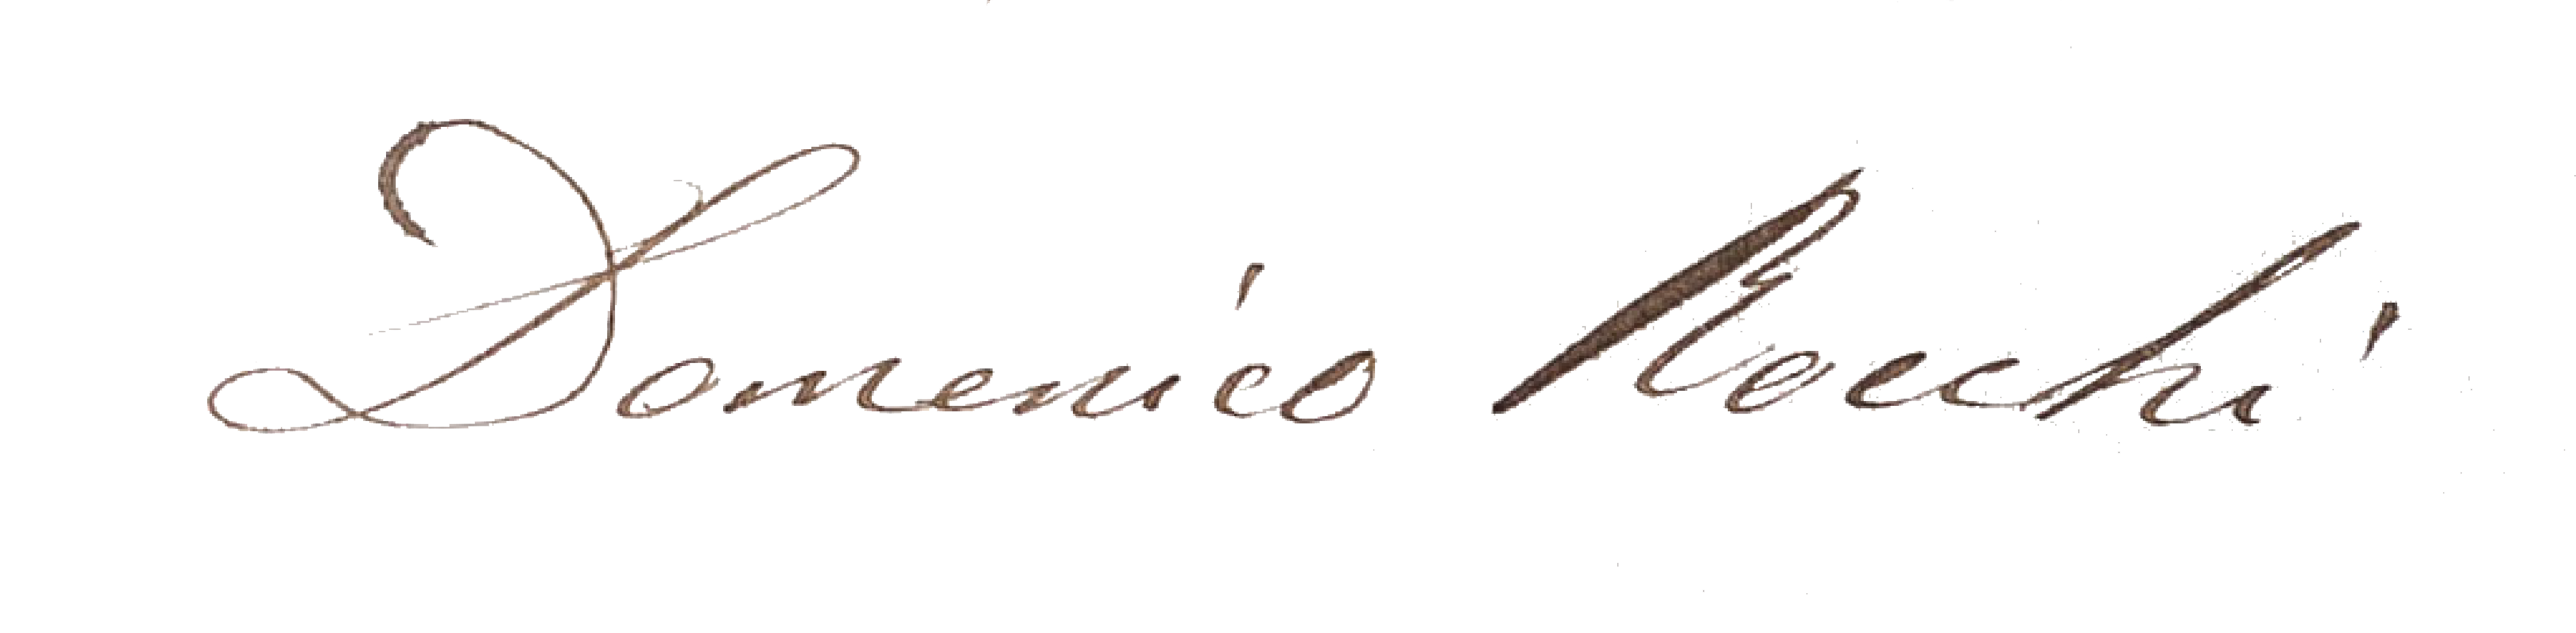 Domenico Rocchi